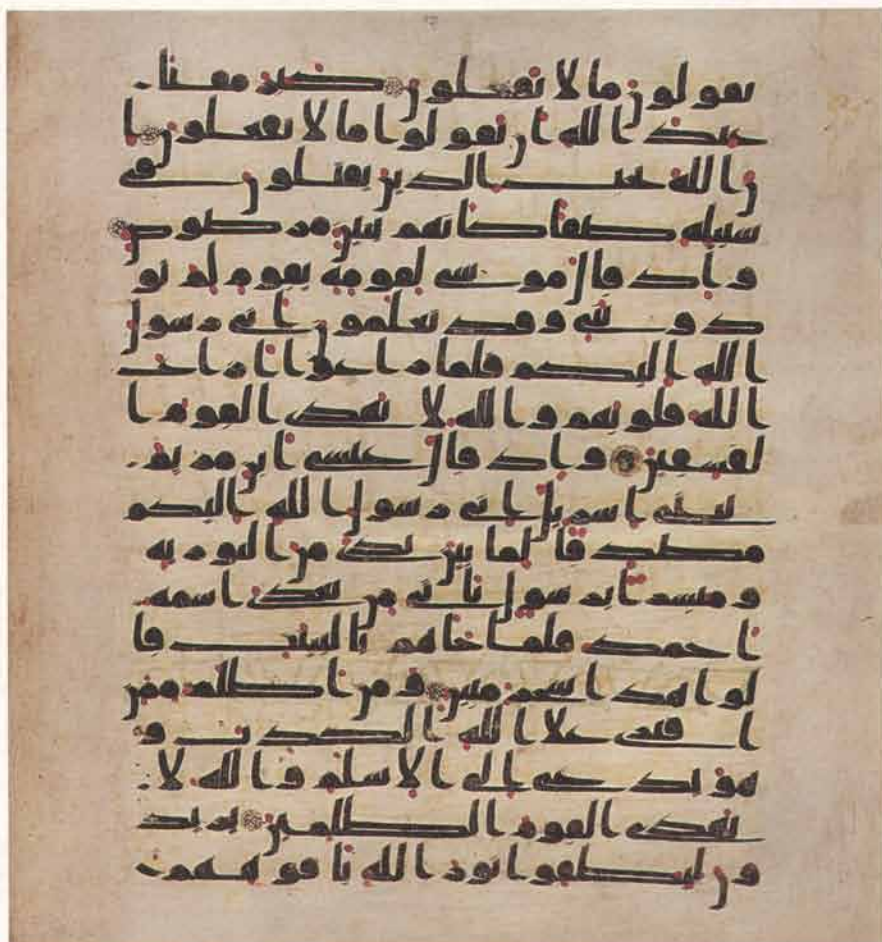 تقولون ما لا تفعلون كبر مقتا
عند الله ان تقولوا ما لا تفعلون ا
ن الله يحب الذين يقتلون في
سبيله صفا كانهم بنين مرصوص
واذ قال موسى لقومه يقوم لم تو
ذونني وقد تعلمون اني رسول
الله اليكم فلما زاغوا ازاغ
الله قلوبهم والله لا يهدي القوم ا
لفسقين واذ قال عيسى ابن مريم
يبني اسريل اني رسول الله اليكم
مصدقا لما بين يدي من التوريه
ومبشرا برسول ياتي من بعدي اسمه
احمد فلما جاهم بالبينت قا
لوا هذا سحر مبين ومن اظلم ممن
افترى علا الله الكذب و
هو يدعى الى الاسلم والله لا
يهدي القوم الظلمين يريد
ون ليطفوا نور الله بافوههم